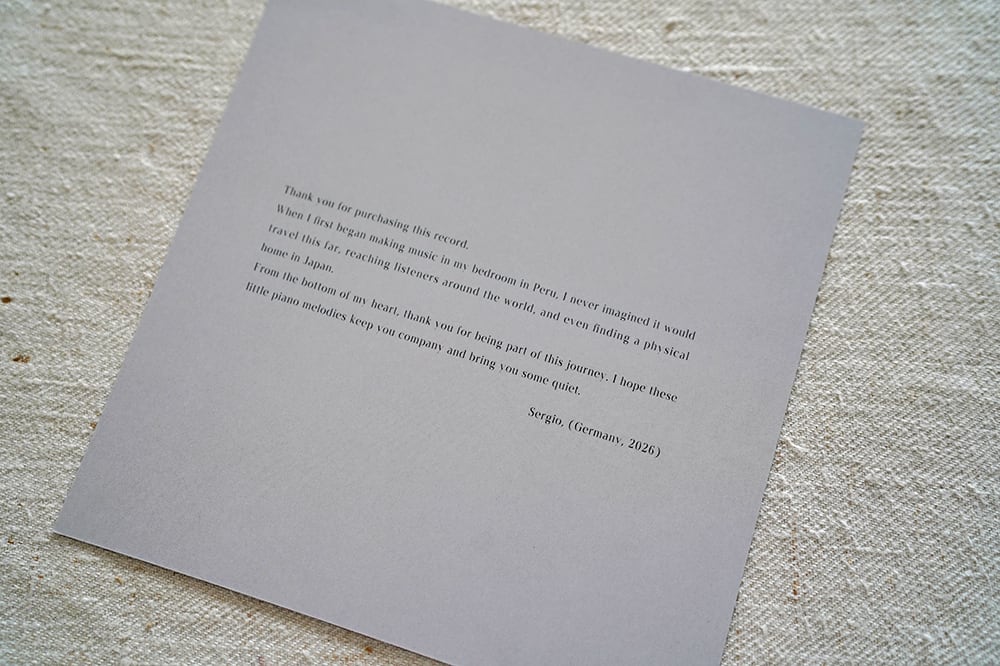 Thank you for purchasing this record.
When I first began making music in my bedroom in Peru, I never imagined it would
travel this far, reaching listeners around the world, and even finding a physical
home in Japan.
From the bottom of my heart, thank you for being part of this journey. I hope these
little piano melodies keep you company and bring you some quiet.
Sergio, (Germany, 2026)